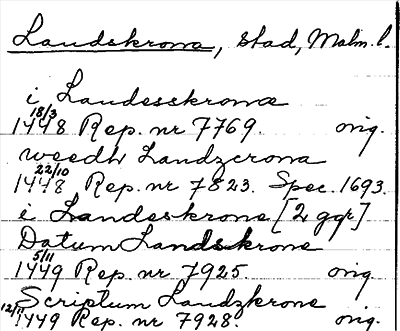 Landskrona, stad, Malm. l.
i Landesskronæ
18/3
1448 Rep. nr 7769. orig.
weedh Landzcrona
22/10
1448 Rep. nr 7823. Spec. 1693.
i Landeskrone [2 ggr]
Datum Landskrone
5/11
1449 Rep. nr 7925. orig.
Scriptum Landzkrone
12/11
1449 Rep. nr 7928. orig.